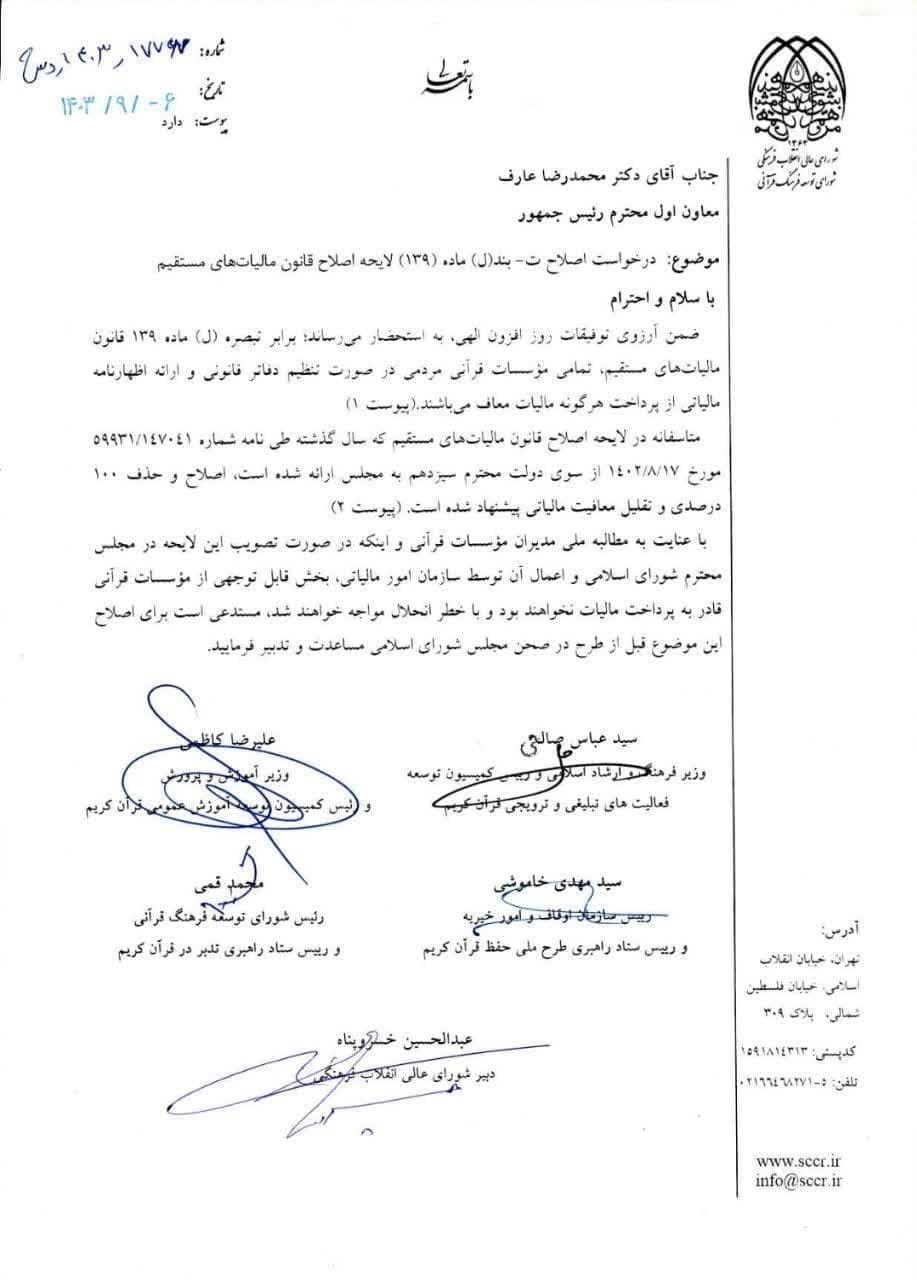 باسمه تعالی
شماره: ۱۷۷۶۷/۱۴۰۳/دش
تاریخ: ۱۴۰۳/۹/۰۶
پیوست: دارد
شورای عالی انقلاب فرهنگی
شورای توسعه فرهنگ قرآنی
جناب آقای دکتر محمدرضا عارف
معاون اول محترم رئیس جمهور
موضوع: درخواست اصلاح ت- بند(ل) ماده (۱۳۹) لایحه اصلاح قانون مالیات‌های مستقیم
با سلام و احترام
ضمن آرزوی توفیقات روز افزون الهی، به استحضار می‌رساند؛ برابر تبصره (ل) ماده ۱۳۹ قانون
مالیات‌های مستقیم، تمامی مؤسسات قرآنی مردمی در صورت تنظیم دفاتر قانونی و ارائه اظهارنامه
مالیاتی از پرداخت هرگونه مالیات معاف می‌باشند.(پیوست ۱)
متاسفانه در لایحه اصلاح قانون مالیات‌های مستقیم که سال گذشته طی نامه شماره ۵۹۹۳۱/۱۴۷۰۴۱
مورخ ۱۴۰۲/۸/۱۷ از سوی دولت محترم سیزدهم به مجلس ارائه شده است، اصلاح و حذف ۱۰۰
درصدی و تقلیل معافیت مالیاتی پیشنهاد شده است. (پیوست ۲)
با عنایت به مطالبه ملی مدیران مؤسسات قرآنی و اینکه در صورت تصویب این لایحه در مجلس
محترم شورای اسلامی و اعمال آن توسط سازمان امور مالیاتی، بخش قابل توجهی از مؤسسات قرآنی
قادر به پرداخت مالیات نخواهند بود و با خطر انحلال مواجه خواهند شد، مستدعی است برای اصلاح
این موضوع قبل از طرح در صحن مجلس شورای اسلامی مساعدت و تدبیر فرمایید.
سید عباس صالحی
وزیر فرهنگ و ارشاد اسلامی و رییس کمیسیون توسعه
فعالیت های تبلیغی و ترویجی قرآن کریم
علیرضا کاظمی
وزیر آموزش و پرورش
و رئیس کمیسیون توسعه آموزش عمومی قرآن کریم
سید مهدی خاموشی
رییس سازمان اوقاف و امور خیریه
و رییس ستاد راهبری طرح ملی حفظ قرآن کریم
محمد قمی
رئیس شورای توسعه فرهنگ قرآنی
و رییس ستاد راهبری تدبر در قرآن کریم
عبدالحسین خسروپناه
دبیر شورای عالی انقلاب فرهنگی
آدرس:
تهران، خیابان انقلاب
اسلامی، خیابان فلسطین
شمالی، پلاک ۳۰۹
کدپستی: ۱۵۹۱۸۱۴۳۱۳
تلفن: ۵-۰۲۱۶۶۴۶۸۲۷۱
www.sccr.ir
info@sccr.ir